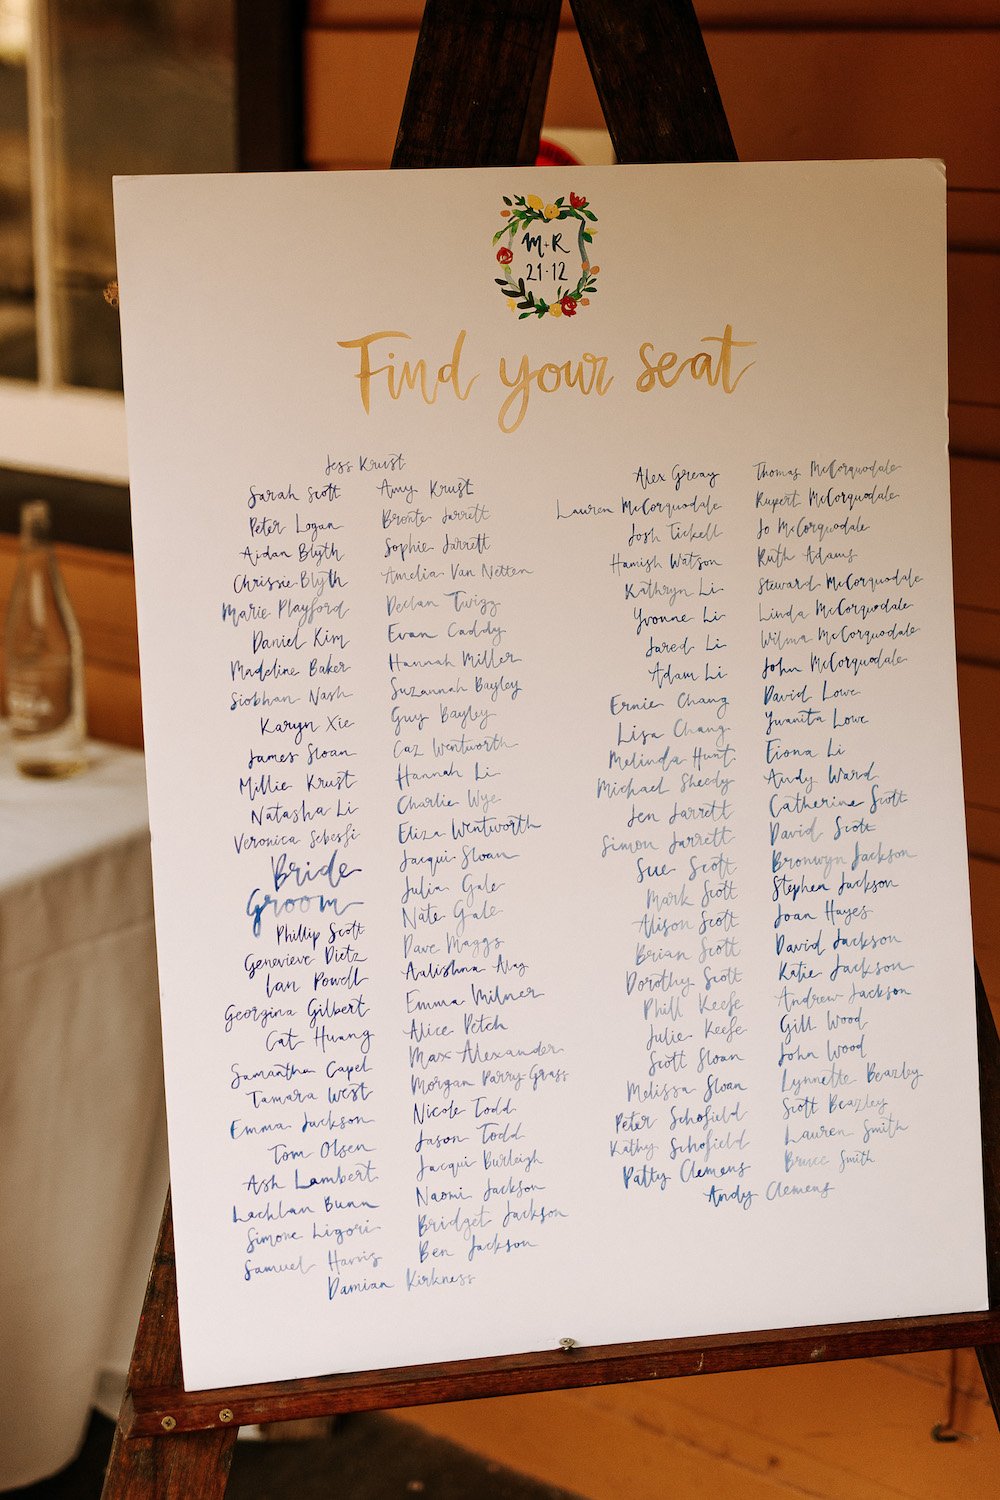 M+R
21·12
Find your seat
Jess Krust
Sarah Scott
Peter Logan
Aidan Blyth
Chrissie Blyth
Marie Playford
Daniel Kim
Madeline Baker
Siobhan Nash
Karyn Xie
James Sloan
Millie Krust
Natasha Li
Veronica Sebesfi
Bride
Groom
Phillip Scott
Genevieve Dietz
Ian Powell
Georgina Gilbert
Cat Huang
Samantha Capel
Tamara West
Emma Jackson
Tom Olsen
Ash Lambert
Lachlan Bunn
Simone Ligori
Samuel Harris
Amy Krust
Bronte Jarrett
Sophie Jarrett
Amelia Van Netten
Declan Twigg
Evan Caddy
Hannah Miller
Suzannah Bayley
Guy Bayley
Caz Wentworth
Hannah Li
Charlie Wye
Eliza Wentworth
Jacqui Sloan
Julia Gale
Nate Gale
Dave Maggs
Aalishna Alag
Emma Milner
Alice Petch
Max Alexander
Morgan Parry-Grass
Nicole Todd
Jason Todd
Jacqui Burleigh
Naomi Jackson
Bridget Jackson
Ben Jackson
Damian Kirkness
Alex Greay
Lauren McCorquodale
Josh Tickell
Hamish Watson
Kathryn Li
Yvonne Li
Jared Li
Adam Li
Ernie Chang
Lisa Chang
Melinda Hunt
Michael Sheedy
Jen Jarrett
Simon Jarrett
Sue Scott
Mark Scott
Alison Scott
Brian Scott
Dorothy Scott
Phill Keefe
Julie Keefe
Scott Sloan
Melissa Sloan
Peter Schofield
Kathy Schofield
Patty Clemens
Thomas McCorquodale
Rupert McCorquodale
Jo McCorquodale
Ruth Adams
Steward McCorquodale
Linda McCorquodale
Wilma McCorquodale
John McCorquodale
David Lowe
Yuanita Lowe
Fiona Li
Andy Ward
Catherine Scott
David Scott
Bronwyn Jackson
Stephen Jackson
Joan Hayes
David Jackson
Katie Jackson
Andrew Jackson
Gill Wood
John Wood
Lynnette Beazley
Scott Beazley
Lauren Smith
Bruce Smith
Andy Clemens